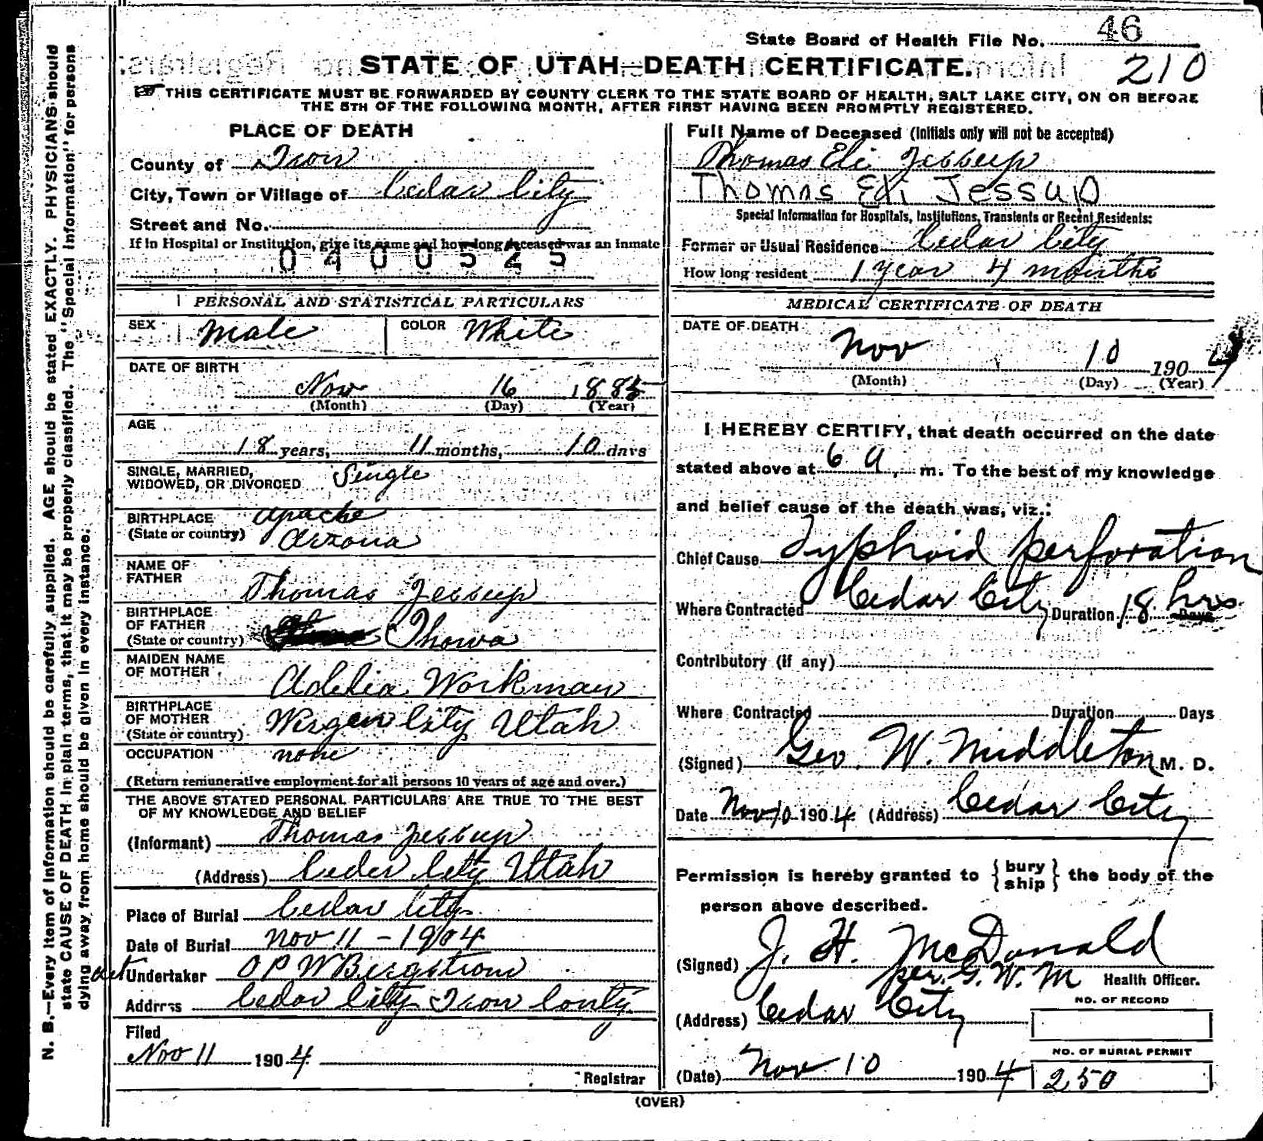 State Board of Health File No. 46
210
STATE OF UTAH—DEATH CERTIFICATE.
THIS CERTIFICATE MUST BE FORWARDED BY COUNTY CLERK TO THE STATE BOARD OF HEALTH, SALT LAKE CITY, ON OR BEFORE
THE 5TH OF THE FOLLOWING MONTH, AFTER FIRST HAVING BEEN PROMPTLY REGISTERED.
PLACE OF DEATH
County of Iron
City, Town or Village of Cedar City
Street and No.
If in Hospital or Institution, give its name and how long deceased was an inmate
0400525
PERSONAL AND STATISTICAL PARTICULARS
SEX Male COLOR White
DATE OF BIRTH
Nov 16 1885
(Month) (Day) (Year)
AGE
18 years, 11 months, 10 days
SINGLE, MARRIED, WIDOWED, OR DIVORCED Single
BIRTHPLACE (State or country) Apache
Arizona
NAME OF FATHER Thomas Jessup
BIRTHPLACE OF FATHER (State or country) Ihowa
MAIDEN NAME OF MOTHER Adelia Workman
BIRTHPLACE OF MOTHER (State or country) Virgen City Utah
OCCUPATION none
(Return remunerative employment for all persons 10 years of age and over.)
THE ABOVE STATED PERSONAL PARTICULARS ARE TRUE TO THE BEST
OF MY KNOWLEDGE AND BELIEF
(Informant) Thomas Jessup
(Address) Ceder City Utah
Place of Burial Cedar City
Date of Burial Nov 11 - 1904
act Undertaker O P W Bergstrom
Address Cedar City Iron County
Filed
Nov 11 1904
Registrar
Full Name of Deceased (Initials only will not be accepted)
Thomas Eli Jessup
Thomas Eli Jessup
Special Information for Hospitals, Institutions, Transients or Recent Residents:
Former or Usual Residence Cedar City
How long resident 1 year 4 months
MEDICAL CERTIFICATE OF DEATH
DATE OF DEATH
Nov 10 1904
(Month) (Day) (Year)
I HEREBY CERTIFY, that death occurred on the date
stated above at 6 a. m. To the best of my knowledge
and belief cause of the death was, viz.:
Chief Cause Typhoid perforation
Where Contracted Cedar City Duration 18 hrs Days
Contributory (if any)
Where Contracted Duration Days
(Signed) Geo. W. Middleton M. D.
Date Nov 10 1904 (Address) Cedar City
Permission is hereby granted to { bury ship } the body of the
person above described.
(Signed) J. H. McDonald
per. G. W. M Health Officer.
(Address) Cedar City
NO. OF RECORD
NO. OF BURIAL PERMIT
(Date) Nov 10 1904 250
(OVER)
N. B.—Every item of information should be carefully supplied. AGE should be stated EXACTLY. PHYSICIANS should
state CAUSE OF DEATH in plain terms, that it may be properly classified. The "Special Information" for persons
dying away from home should be given in every instance.